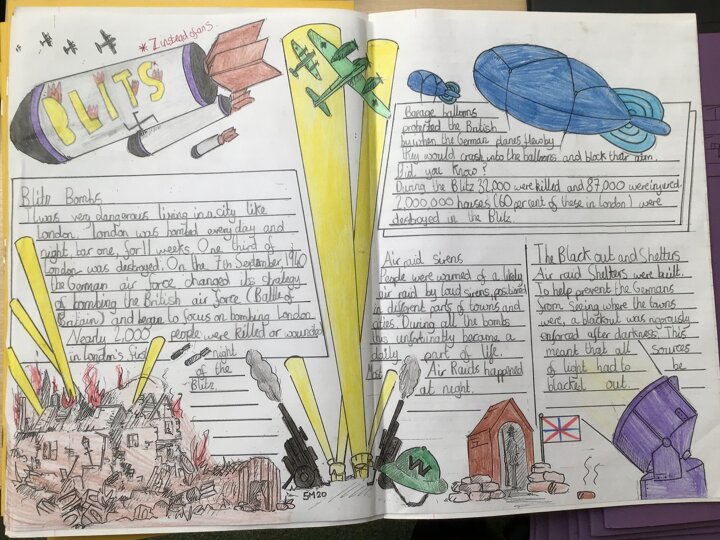 * Z instead of an s.
BLITS
Blitz Bombs
It was very dangerous living in a city like
London. London was bombed every day and
night, bar one, for 11 weeks. One third of
London was destroyed. On the 7th September 1940
the German air force changed its strategy
of bombing the British air force (Battle of
Britain) and began to focus on bombing London.
Nearly 2,000 people were killed or wounded
in London's first night
of the
Blitz.
5M20
Barage balloons
protected the British
by when the German planes flew by
they would crash into the balloons and block their
Did you know?
During the Blitz 32,000 were killed and 87,000 were injured.
2,000,000 houses (60 percent of these in London) were
destroyed in the Blitz.
Air raid sirens
People were warned of a likely
air raid by loud sirens, positioned
in different parts of towns and
cities. During all the bombs
this unfortunatly became a
daily part of life.
Most Air Raids happened
at night.
W
The Black out and Shelters
Air raid Shelters were built.
To help prevent the Germans
from seeing where the towns
were, a blackout was rigorously
enforced after darkness. This
meant that all sources
of light had to be
blacked out.